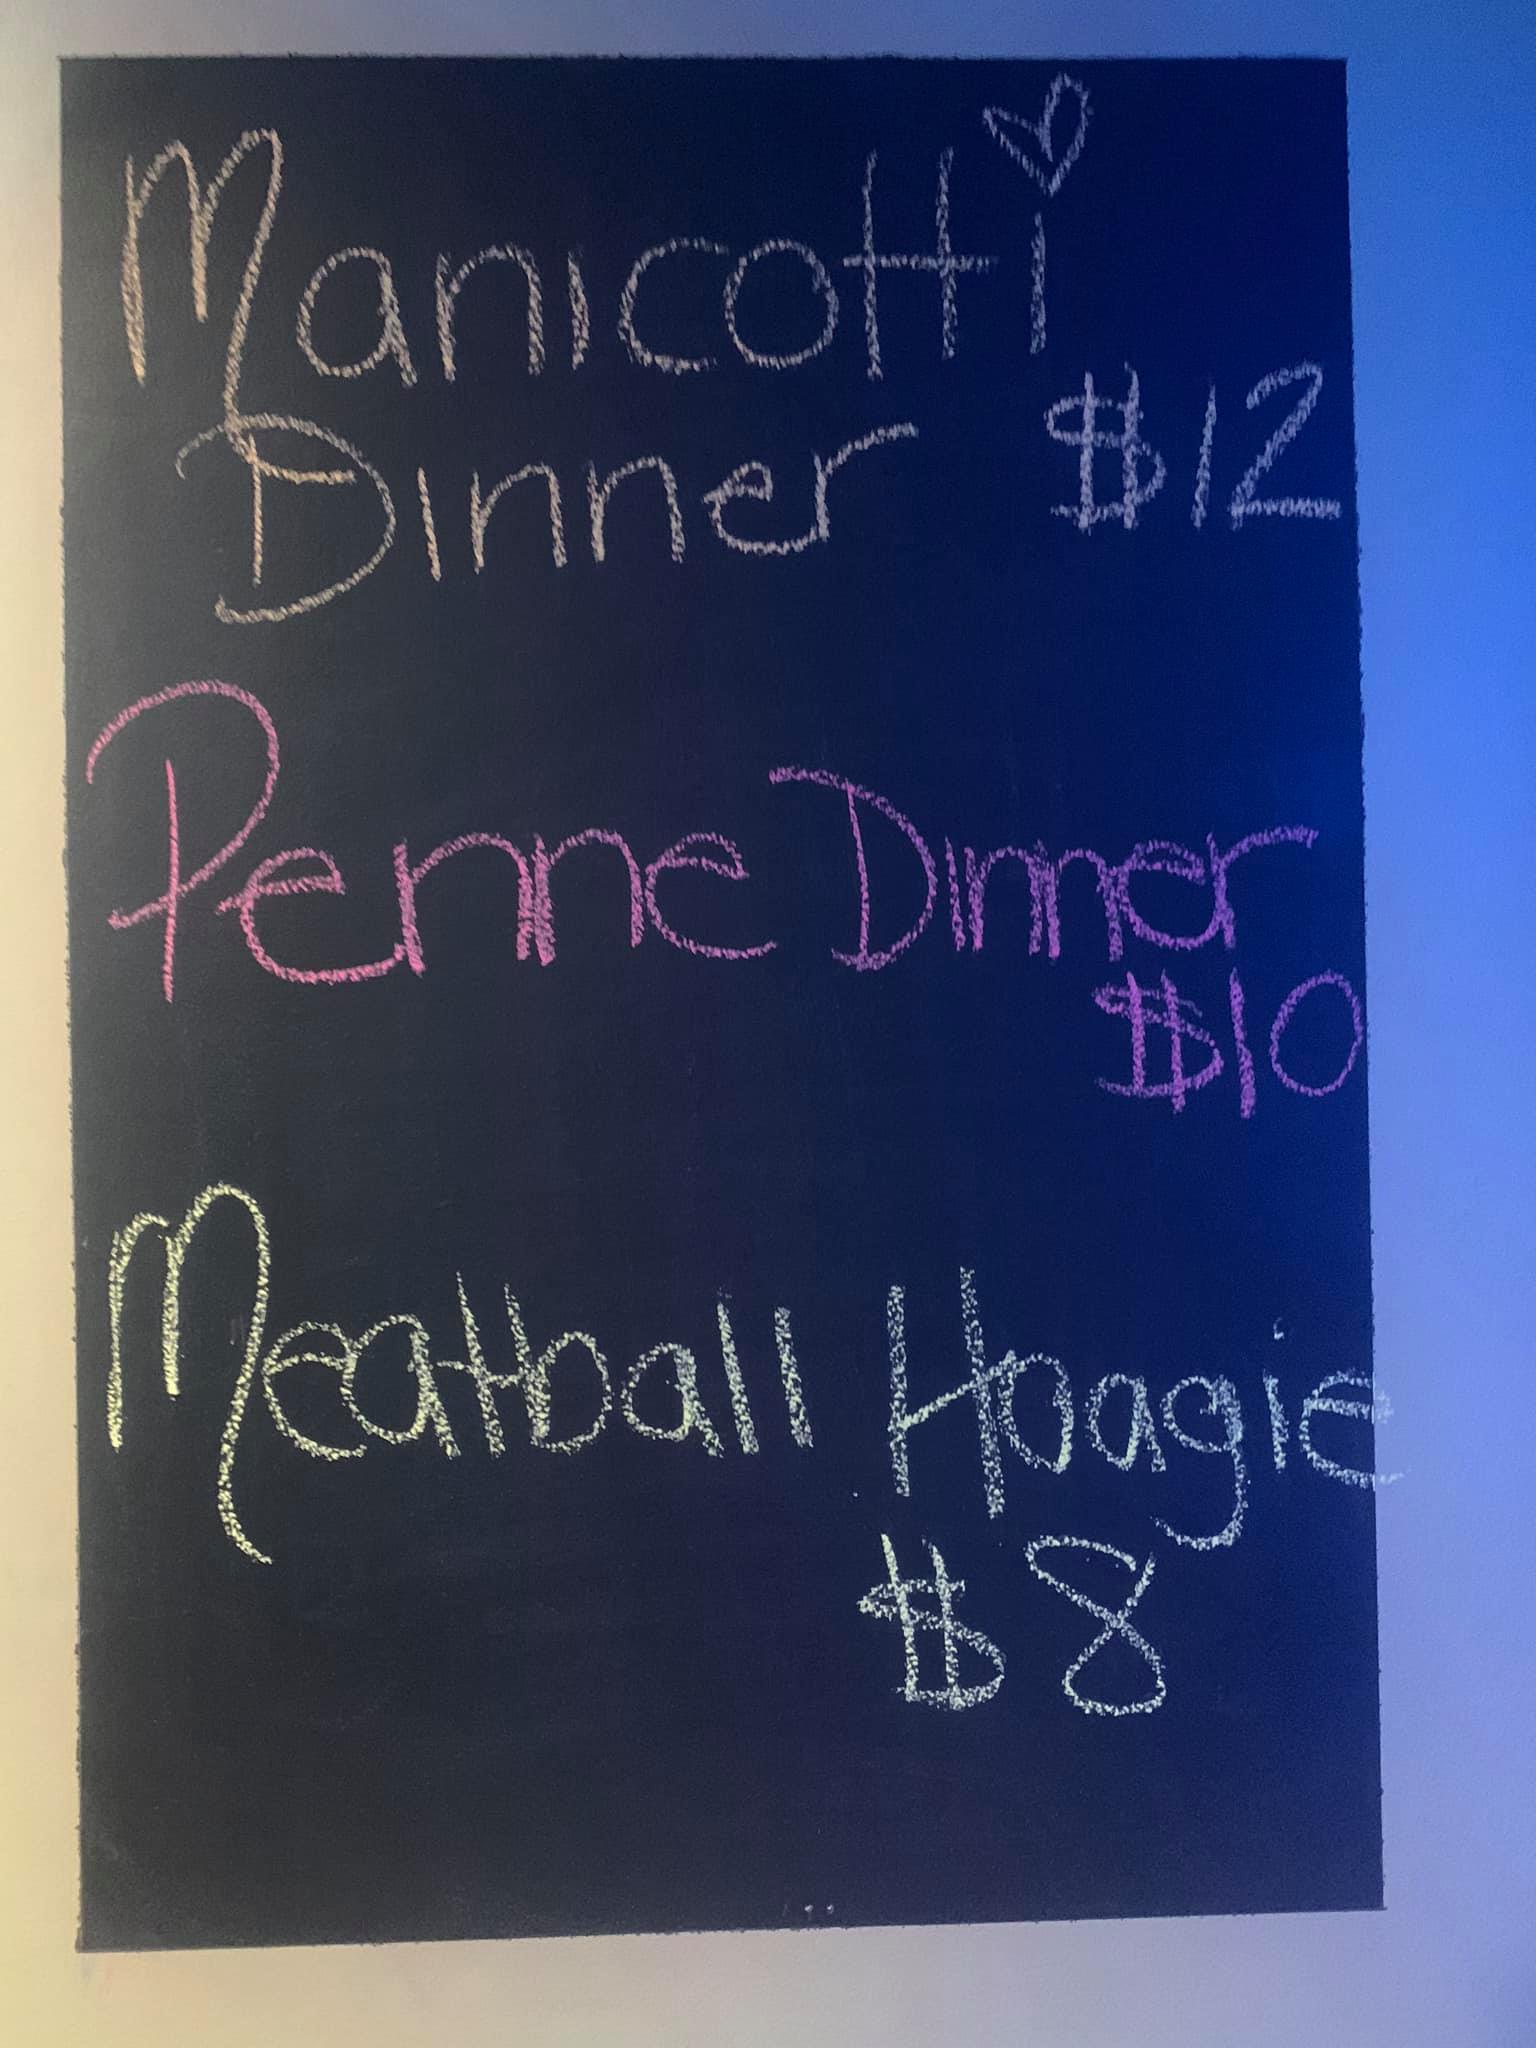 Manicotti
Dinner $12
Penne Dinner
$10
Meatball Hoagie
$8